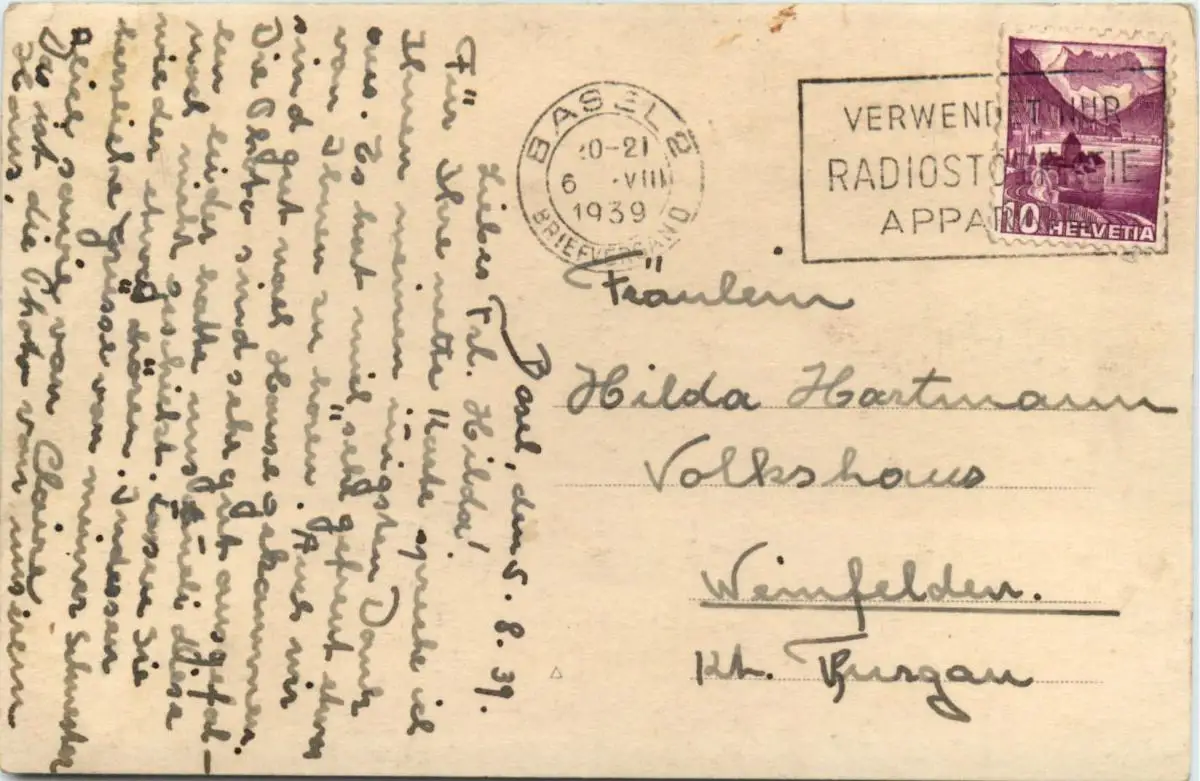 Basel, den 5. 8. 39.
Liebes Frl. Hilda!
Für Ihre nette Karte spreche ich
Ihnen meinen innigsten Dank
aus. Es hat mich sehr gefreut etwas
von Ihnen zu hören. Auch wir
sind gut nach Hause gekommen.
Die Photo sind sehr gut ausgefal-
len leider hatte uns diese
noch nicht geschickt. Lassen Sie
wieder etwas hören. Indessen
herzliche Grüsse von meiner Schwester
sowie von Claire
Das ist die Photo von unserem
Haus.
BASEL 2
20-21
6. VIII
1939
BRIEFVERSAND
VERWENDET NUR
RADIOSTÖRFREIE
APPARATE
10 HELVETIA
Fräulein
Hilda Hartmann
Volkshaus
Weinfelden.
Kt. Thurgau